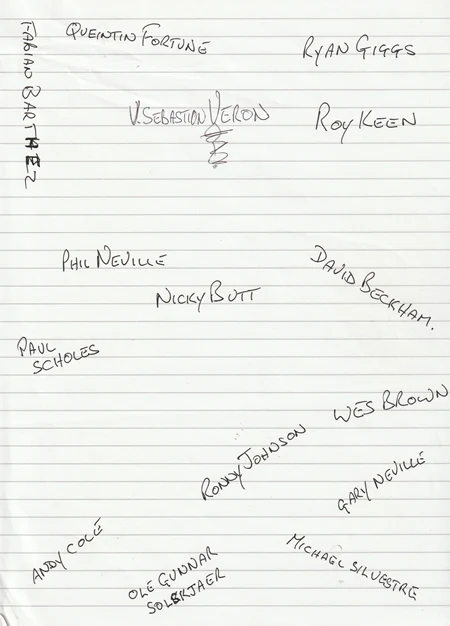 FABIAN BARTHEZ
QUEINTIN FORTUNE
RYAN GIGGS
V.SEBASTION VERON
ROY KEEN
PHIL NEVILLE
NICKY BUTT
DAVID BECKHAM.
PAUL
SCHOLES
WES BROWN
RONNY JOHNSON
GARY NEVILLE
ANDY COLE
OLE GUNNAR
SOLSKJAER
MICHAEL SILVESTRE